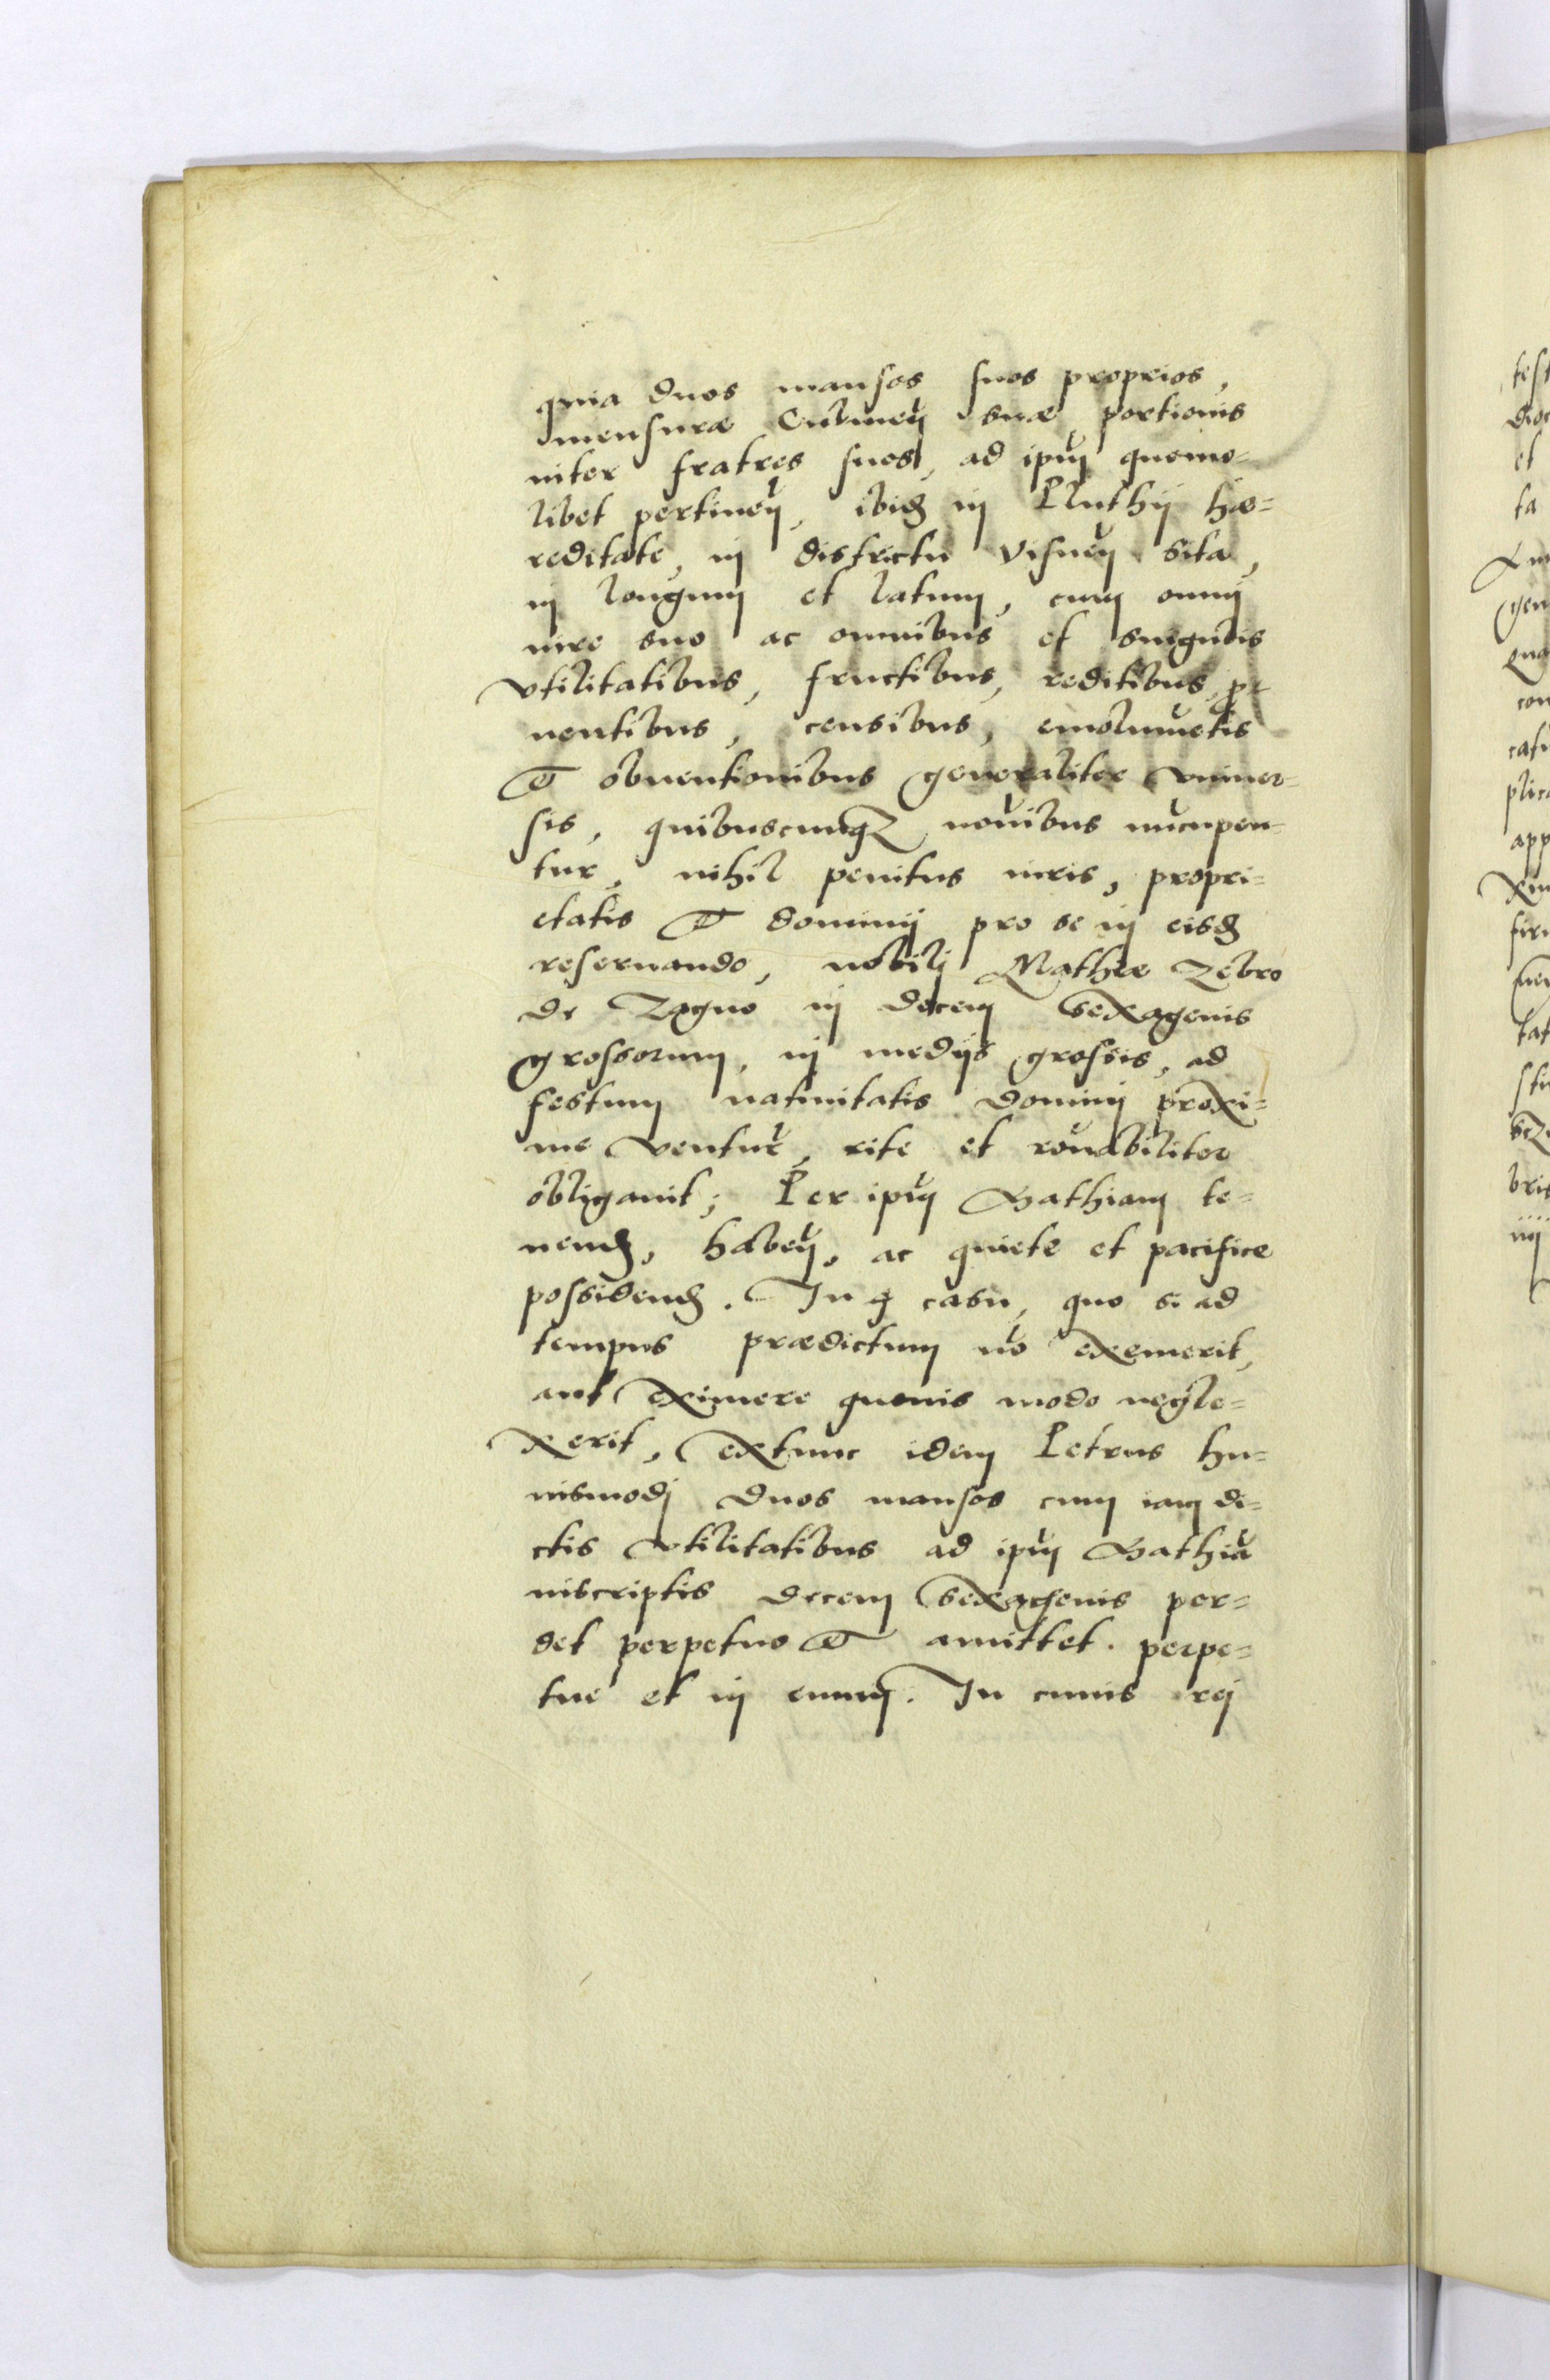 quia duos mansos suos proprios,
mensuræ Culmen̄ suæ portionis
inter fratres suos, ad ipm̄ quomo-
libet pertinen̄, ibid in Pluthij hæ-
reditate, in districtu Visnen̄ sita,
in longum et latum, cum omni
iure suo ac omnibus et singulis
vtilitatibus, fructibus, reditibus, pro-
uentibus, censibus, emolumētis
& obuentionibus generaliter vniuer-
sis, quibuscunq nōibus nūcupen-
tur, nihil penitus iuris, propri-
etatis & dominij pro se in eisd
reseruando, nobili Mathiæ Zebro
de Zagno in decem sexagenis
grossorum, in medijs grossis, ad
festum natiuitatis Domini proxi-
me ventur̄, rite et rōnabiliter
obligauit; Per ipm̄ Mathiam te-
nend, haben̄, ac quiete et pacifice
possidend. In q casu, quo si ad
tempus prædictum nō exemerit,
aut eximere quouis modo negle-
xerit, extunc idem Petrus hu-
iusmodi duos mansos cum iam di-
ctis vtilitatibus ad ipm̄ Mathiā
inscriptis decem sexagenis per-
det perpetuo & amittet. perpe-
tue et in euum. In cuius rei
test
dior
et
ta
gen
qua
con
casu
plic
app
firm
tat
stu
bris